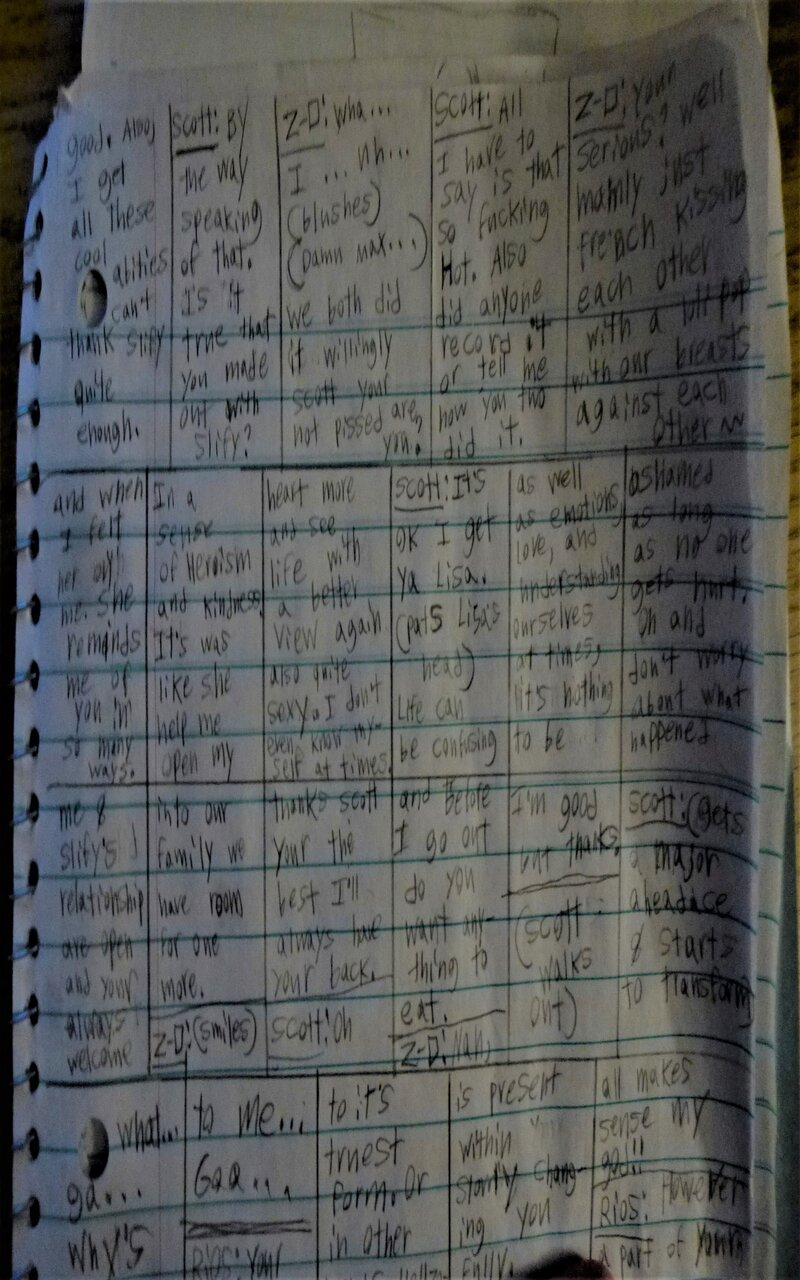 good. Also,
I get
all these
cool
abilities
can't
thank slify
quite
enough.
Scott: By
the way
speaking
of that.
I's it
true that
you made
out with
slify?
Z-D: Wha...
I ... uh...
(blushes)
(Damn max...)
we both did
it willingly
scott your
not pissed are
you.
Scott: All
I have to
say is that
so fucking
Hot. Also
did anyone
record it
or tell me
how you two
did it.
Z-D: Your
serious? well
mainly just
french kissing
each other
with a lollipop
with our breasts
against each
other
and when
I felt
her on
me. She
reminds
me of
you in
so many
ways.
In a
sense
of Heroism
and kindness.
It's was
like she
help me
open my
heart more
and see
life with
a better
view again
also quite
sexy. I don't
even know my-
self at times.
Scott: It's
OK I get
ya Lisa.
(pats Lisa's
head)
Life can
be confusing
as well
as emotions,
love, and
understanding
ourselves
at times,
it's nothing
to be
ashamed
as long
as no one
gets hurt.
Oh and
don't worry
about what
happened
me &
slify's
relationship
are open
and your
always
welcome
into our
family we
have room
for one
more.
Z-D: (smiles)
thanks scott
your the
best I'll
always have
your back.
Scott: Oh
and before
I go out
do you
want any-
thing to
eat.
Z-D: Nah,
I'm good
but thanks.
(Scott
walks
out)
Scott: (gets
a major
aheadace
& starts
to transform
what...
ga...
Why's
to me...
Gaa...
Rios: Your
to it's
truest
form. Or
in other
is present
within
slowly chang-
ing you
fully.
all makes
sense my
god!!
Rios: However
a part of